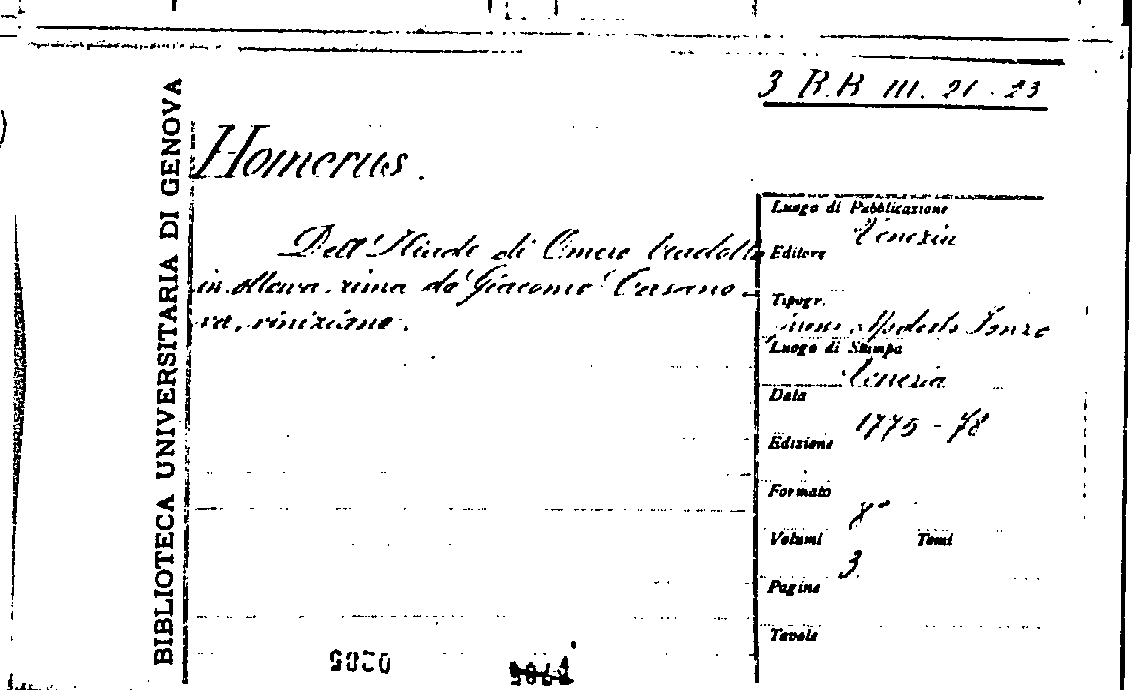 3 R.R III. 21-23
BIBLIOTECA UNIVERSITARIA DI GENOVA
Homerus.
Dell'Iliade di Omero tradotta
in ottava rima da Giacomo Casano-
va, viniziano.
Luogo di Pubblicazione
Venezia
Editore
Tipogr.
Modesto Fenzo
Luogo di Stampa
Venezia
Data
1775-78
Edizione
Formato
8°
Volumi Tomi
3
Pagine
Tavole
0205